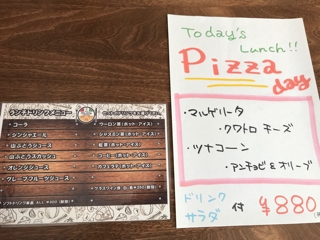 ランチドリンクメニュー
・コーラ
・ジンジャエール
・山ぶどうジュース
・山ぶどうスカッシュ
・オレンジジュース
・グレープフルーツジュース
・ウーロン茶(ホット・アイス)
・ジャスミン茶(ホット・アイス)
・紅茶(ホット・アイス)
・コーヒー(ホット・アイス)
・カフェラテ(ホット・アイス)
Today's
Lunch!!
Pizza
day
・マルゲリータ
・クワトロ チーズ
・ツナコーン
・アンチョビ & オリーブ
ドリンク
サラダ 付 ¥880